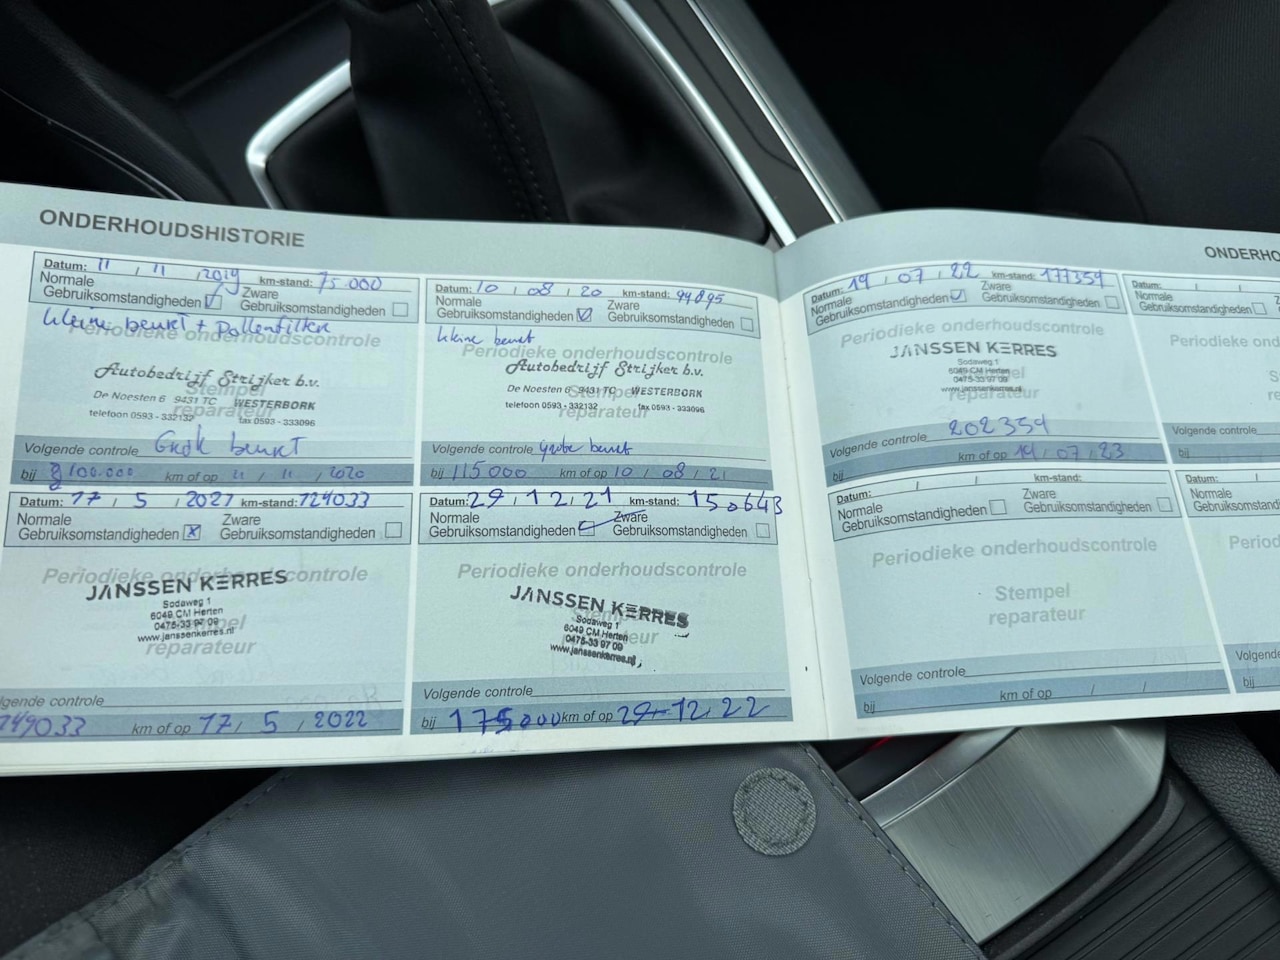 ONDERHOUDSHISTORIE
Datum: 11 , 11 , 2019 km-stand: 75.000
Normale
Gebruiksomstandigheden
Zware
Gebruiksomstandigheden
kleine beurt + Pollenfilter
Periodieke onderhoudscontrole
Autobedrijf Strijker b.v.
Stempel
De Noesten 6 9431 TC WESTERBORK
reparateur
telefoon 0593 - 332132 fax 0593 - 333096
Volgende controle beurt
bij 100.000 km of op 11 / 11 / 2020
Datum: 10 , 08 , 20 km-stand: 94895
Normale
Gebruiksomstandigheden
Zware
Gebruiksomstandigheden
kleine beurt
Periodieke onderhoudscontrole
Autobedrijf Strijker b.v.
Stempel
De Noesten 6 9431 TC WESTERBORK
reparateur
telefoon 0593 - 332132 fax 0593 - 333096
Volgende controle grote beurt
bij 115000 km of op 10 / 08 / 21
Datum: 17 , 5 , 2021 km-stand: 124033
Normale
Gebruiksomstandigheden x
Zware
Gebruiksomstandigheden
Periodieke onderhoudscontrole
JANSSEN KERRES
Sodaweg 1
6049 CM Herten
0475-33 97 09
www.janssenkerres.nl
reparateur
Volgende controle
149033 km of op 17 / 5 / 2022
Datum: 29 , 12 , 21 km-stand: 150643
Normale
Gebruiksomstandigheden
Zware
Gebruiksomstandigheden
Periodieke onderhoudscontrole
JANSSEN KERRES
Sodaweg 1
6049 CM Herten
0475-33 97 09
www.janssenkerres.nl
Volgende controle
bij 175000 km of op 29-12, 22
ONDERHO
Datum: 19 , 07 , 22 km-stand: 177354
Normale
Gebruiksomstandigheden
Zware
Gebruiksomstandigheden
Periodieke onderhoudscontrole
JANSSEN KERRES
Sodaweg 1
6049 CM Herten
0475-33 97 09
www.janssenkerres.nl
reparateur
202354
Volgende controle
bij km of op 19 / 07 / 23
Datum: / / km-stand:
Normale
Gebruiksomstandigheden
Zware
Gebruiksomstandigheden
Periodieke onderhoudscontrole
Stempel
reparateur
Volgende controle
bij km of op / /
Datum: / /
Normale
Gebruiksomstandigheden
Periodieke on
S
re
Volgende controle
bij
Datum: /
Normale
Gebruiksomstandig
Period
Volgende
bij